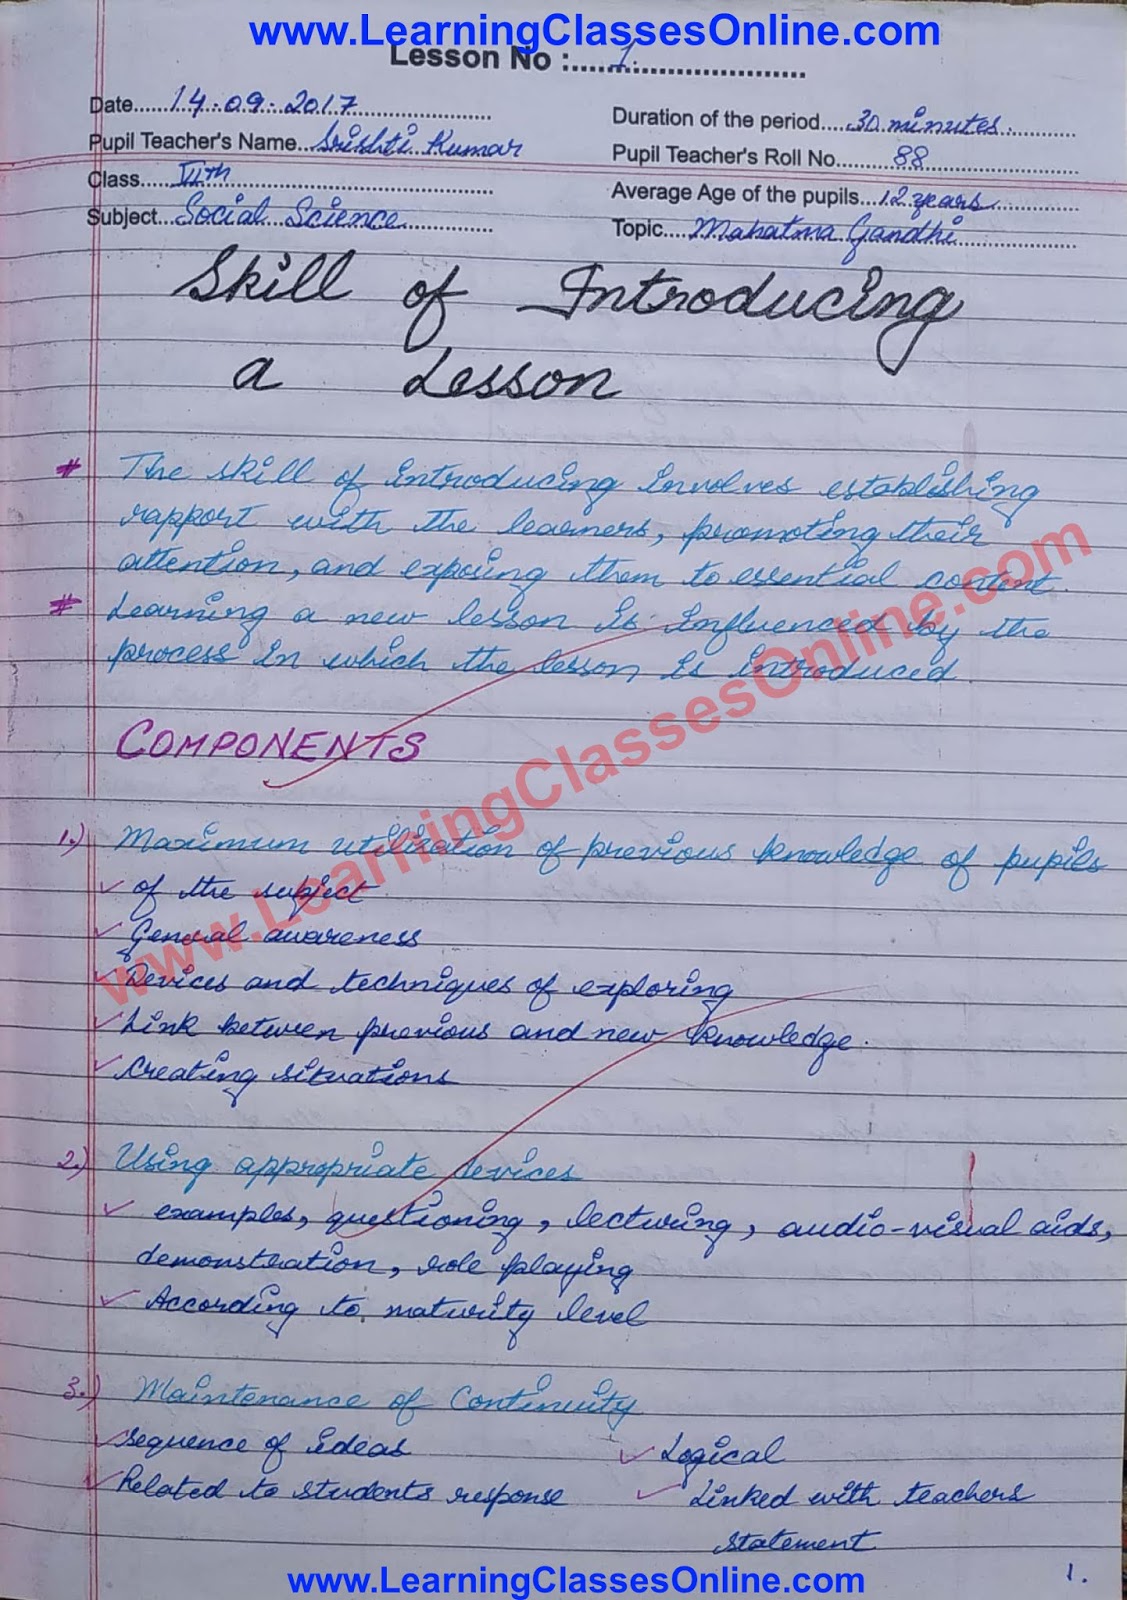 www.LearningClassesOnline.com
Lesson No :......1..........................
Date......14.09.2017......................
Duration of the period.....30 minutes............
Pupil Teacher's Name...Srishti Kumar
Pupil Teacher's Roll No.........88.........................
Class.....VIIth...........................................
Average Age of the pupils...12 years...............
Subject...Social Science...............
Topic.....Mahatma Gandhi.....................
Skill of Introducing
a Lesson
# The skill of introducing involves establishing
rapport with the learners, promoting their
attention, and exposing them to essential content.
# Learning a new lesson is influenced by the
process in which the lesson is introduced.
COMPONENTS
1.) Maximum utilization of previous knowledge of pupils
✓ of the subject
✓ General awareness
✓ Devices and techniques of exploring
✓ Link between previous and new knowledge.
✓ Creating situations
2.) Using appropriate devices
✓ examples, questioning, lecturing, audio-visual aids,
demonstration, role playing
✓ According to maturity level
3.) Maintenance of Continuity
✓ sequence of ideas ✓ Logical
✓ Related to students response ✓ Linked with teachers
statement
1.
www.LearningClassesOnline.com
www.LearningClassesOnline.com